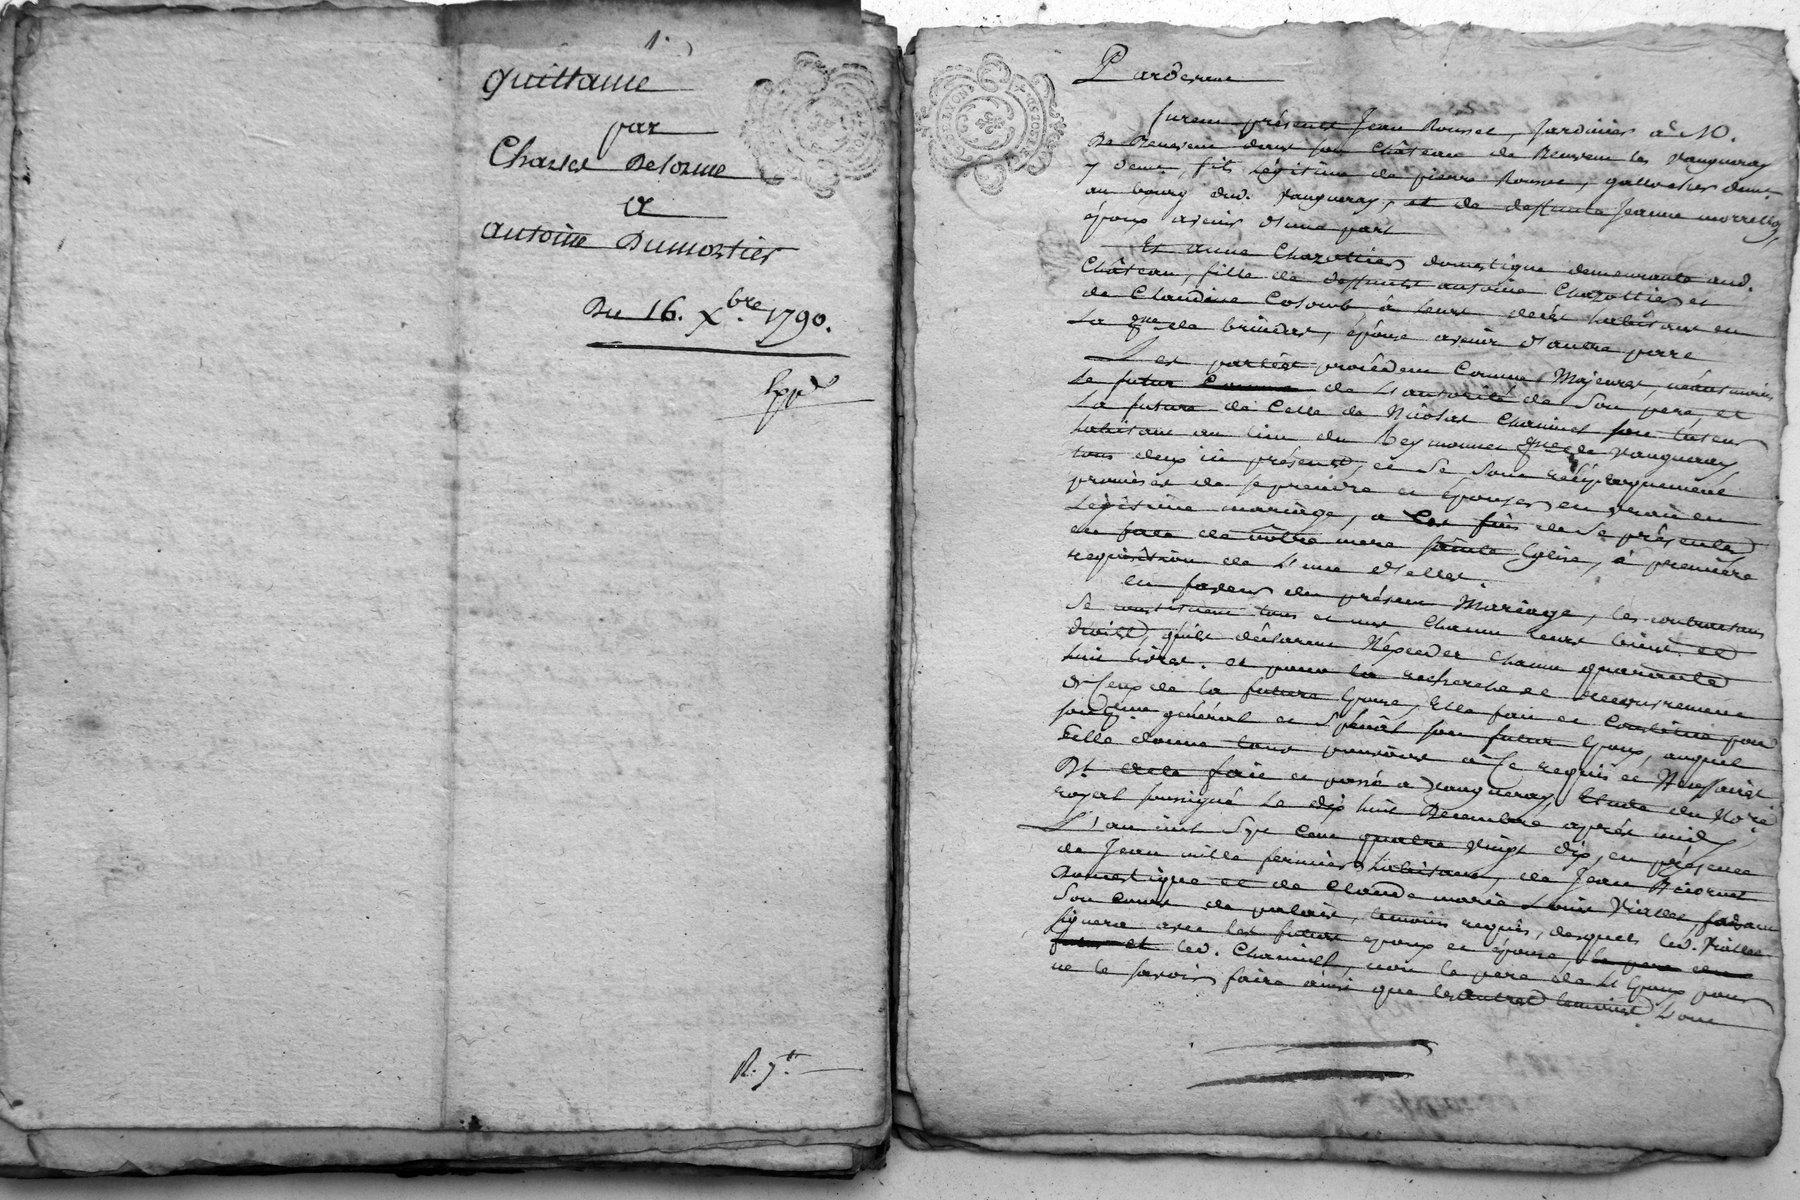 1.
quittance
par
Charles Delorme
a
antoine Dumortier
Du 16. Xbre. 1790.
R. 7.tt
Pardevant
furent présents Jean Rousset, Jardinier à M.
De dans son Château de les vaugneray
y demt., fils légitime de pierre Rousset, demt.
au bourg dud. vaugneray, et de deffunte Jeanne
époux avenir d'une part
Et anne Chazottier domestique demeurante aud.
Château, fille de deffunts antoine Chazottier et
de Claudine Colomb à leurs décès habitant en
La de brindas, épouse avenir d'autre part
Les parties procédent Comme Majeures, néantmoins
Le futur de L'autorité de son pere, et
La future de Celle de Nicolas Chaminet son tuteur
habitant au lieu du vaugneray
tous deux ici présents, et se sont réciproquement
promises de se prendre et épouser en vrai en
Légitime mariage, a Ces fins de se présenter
en face de nôtre mere sainte Eglise, à premiere
requisition de L'une d'elles.
En faveur du présent Mariage, les contractans
se constituent tous et uns Chacun leurs biens et
droits, qu'ils déclarent N'exceder Chacun quarante
huit livres. et pour la recherche et recouvrement
d'Ceux de la future Epouse, Elle fait et Constitue pour
son général et spécial son futur Epoux, auquel
Elle donne tous pouvoirs a Ce requis et Nécessaires
Dt. acte fait et passé a vaugneray, Etude du Nore.
royal soussigné Le dix huit Décembre après midy
L'an mil sept cent quatre vingt dix, en présence
de Jean mille fermier habitant, de Jean
Domestique et de Claude marie Louis Vialles,
Son Cours de palais, temoins requis, desquels led. Vialles
signera avec les futurs epoux et épouse, le pere du
futur et led. Chaminet, non le pere de L'Epoux pour
ne le savoir faire ainsi que les autres temoins L'ont